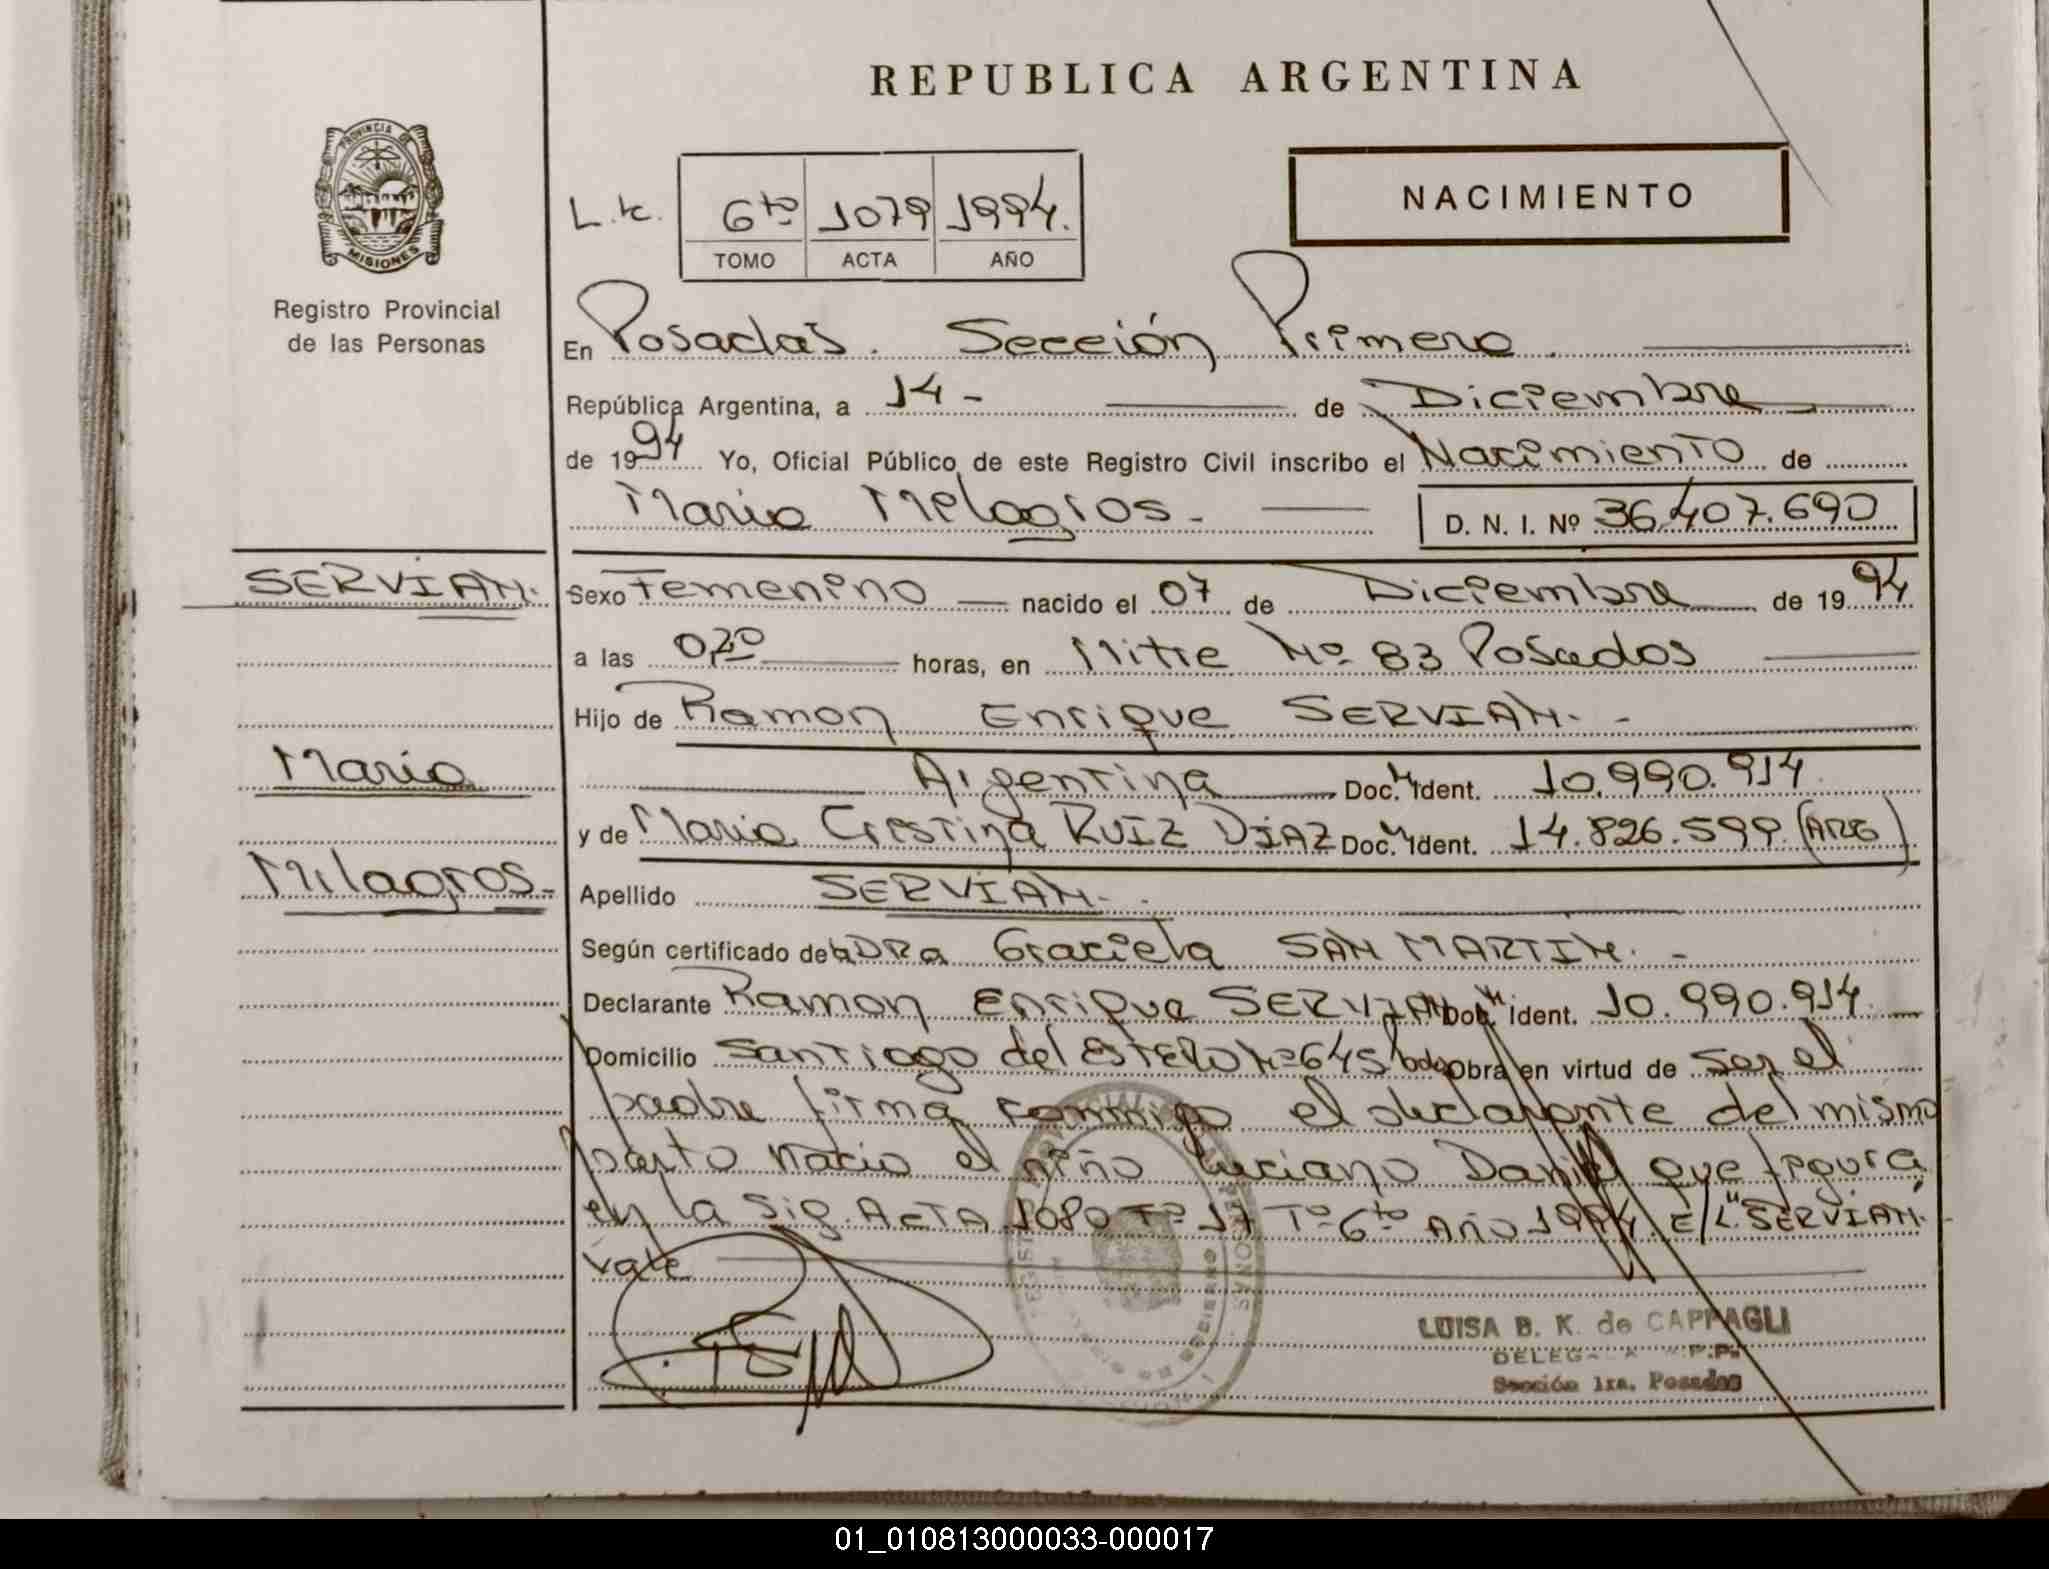 REPUBLICA ARGENTINA
PROVINCIA DE
MISIONES
Registro Provincial
de las Personas
NACIMIENTO
6to 1079 1994.
TOMO ACTA AÑO
En Posadas. Sección Primera
República Argentina, a 14 - de Diciembre
de 1994 Yo, Oficial Público de este Registro Civil inscribo el Nacimiento de
Maria Milagros - D. N. I. Nº 36.407.690
SERVIAN.
Maria
Milagros -
Sexo Femenino nacido el 07 de Diciembre de 1994
a las 0,20 horas, en Mitre Nº 83 Posadas
Hijo de Ramon Enrique SERVIAN. -
Argentina Doc. Ident. 10.990.914
y de Maria Cristina RUIZ DIAZ Doc. Ident. 14.826.599 (ARG)
Apellido SERVIAN. -
Según certificado de la DRa Graciela SAN MARTIN. -
Declarante Ramon Enrique SERVIAN Doc. Ident. 10.990.914
Domicilio Santiago del ESTERO Nº 645 Obra en virtud de ser el
padre firma conmigo el declarante del mismo
parto nacio el niño Luciano Daniel que figura
en la sig. ACTA 1080 Tº 6to AÑO 1994. E/L. "SERVIAN."
Vale
LUISA B. K. de CAPPAGLI
Sección 1ra. Posadas
01_010813000033-000017